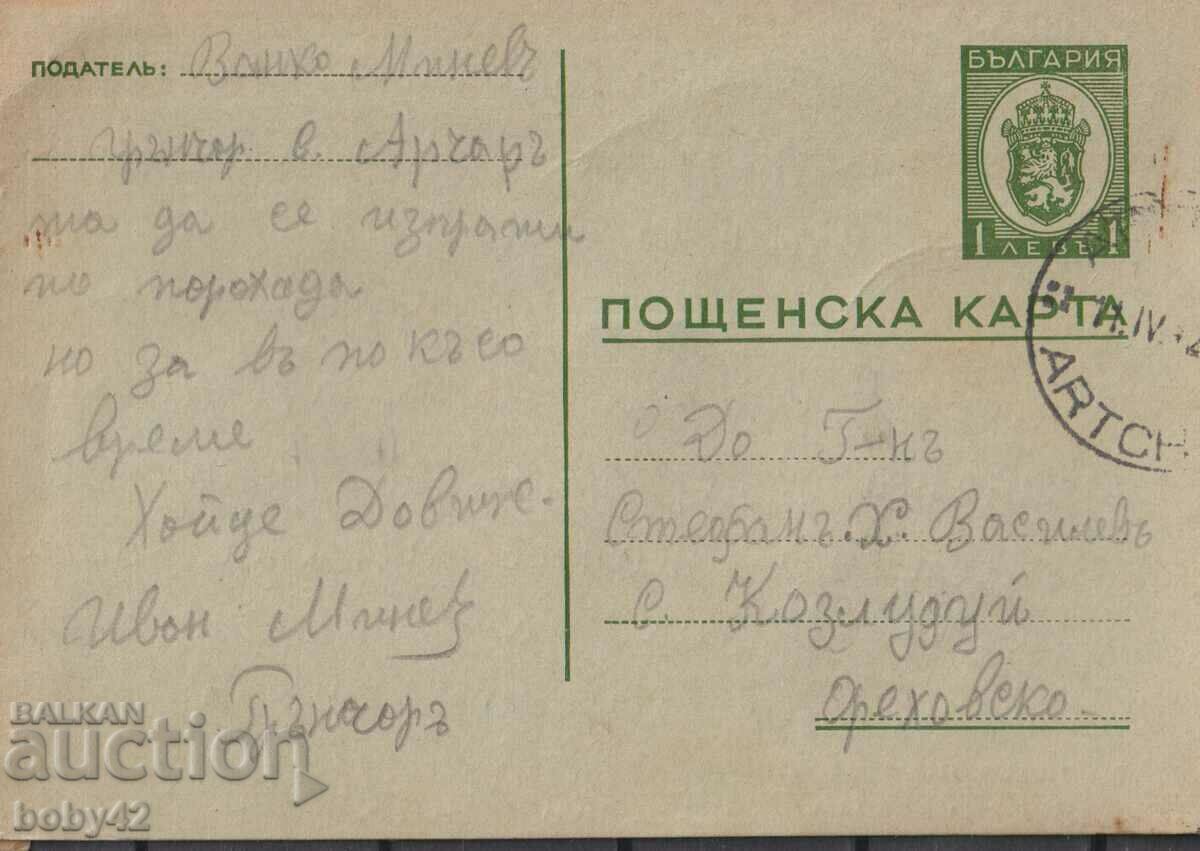 ПОДАТЕЛЬ: Ванко Миневъ
грънчар в. Арчаръ
та да се изпрати
по порохада
но за въ по късо
време
Хойде Довиж.
Иван Минев
Грънчоръ
БЪЛГАРИЯ
1 ЛЕВЪ 1
ПОЩЕНСКА КАРТА
11.IV.42
ARTCH
До Г-нъ
Стефанъ.Х. Василевъ
с. Козлудуй
Ореховско
BALKAN
auction
boby42